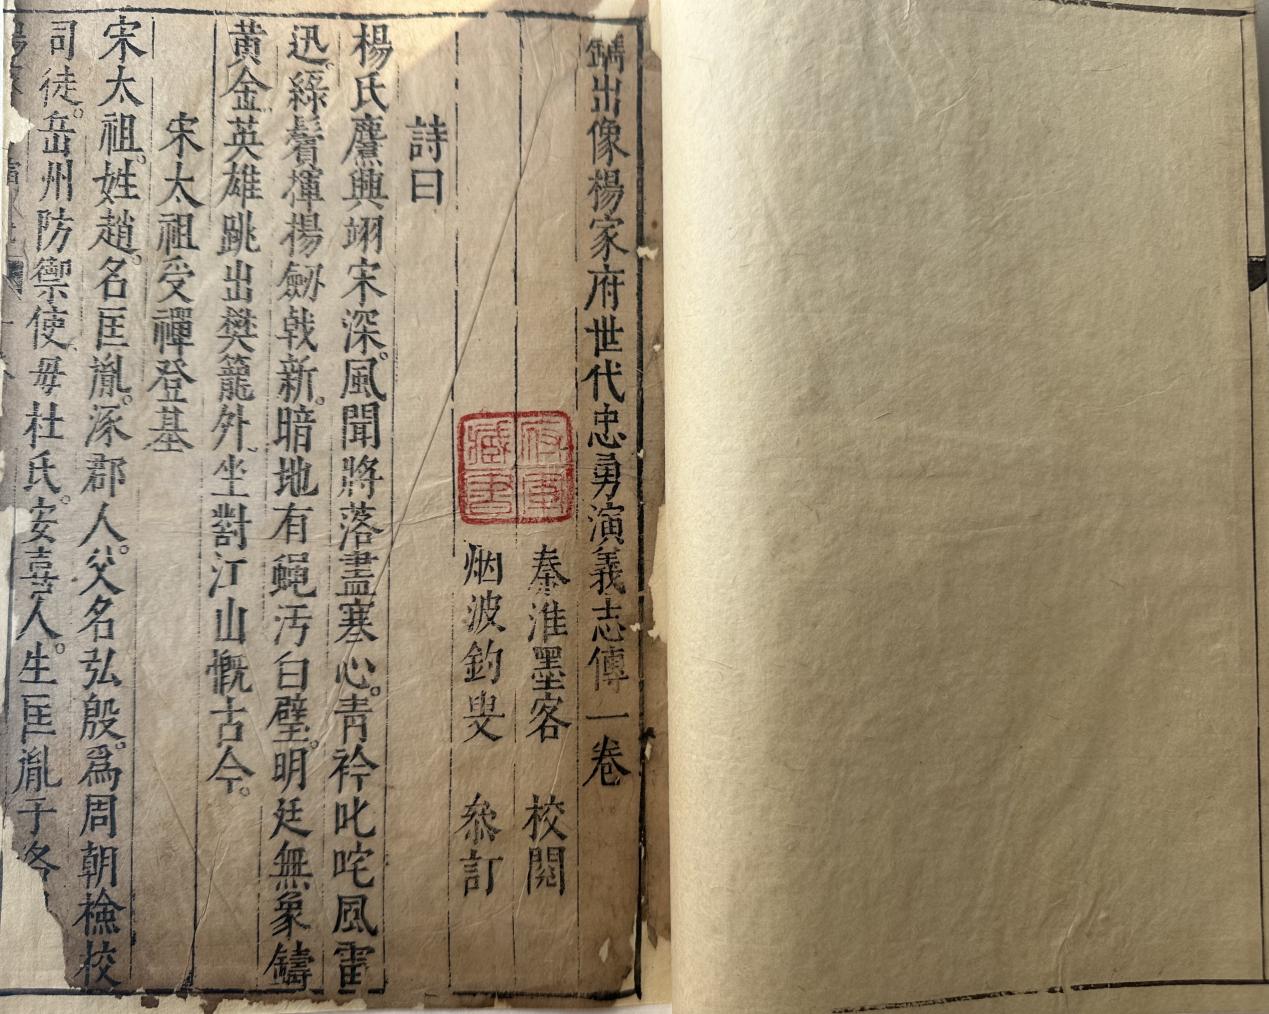 鐫出像楊家府世代忠勇演義志傳一卷
秦淮墨客 校閱
烟波釣叟 叅訂
藏書
詩曰
楊氏麃興翊宋深。風聞將落盡塞心。靑衿叱咤風雷
迅。綠鬢揮揚劒戟新。暗地有蠅汚白璧。明廷無象鑄
黃金。英雄跳出樊籠外。坐對江山慨古今。
宋太祖受禪登基
宋太祖。姓趙。名匡胤。涿郡人。父名弘殷。爲周朝檢校
司徒。岳州防禦使。毋杜氏。安喜人。生匡胤于洛